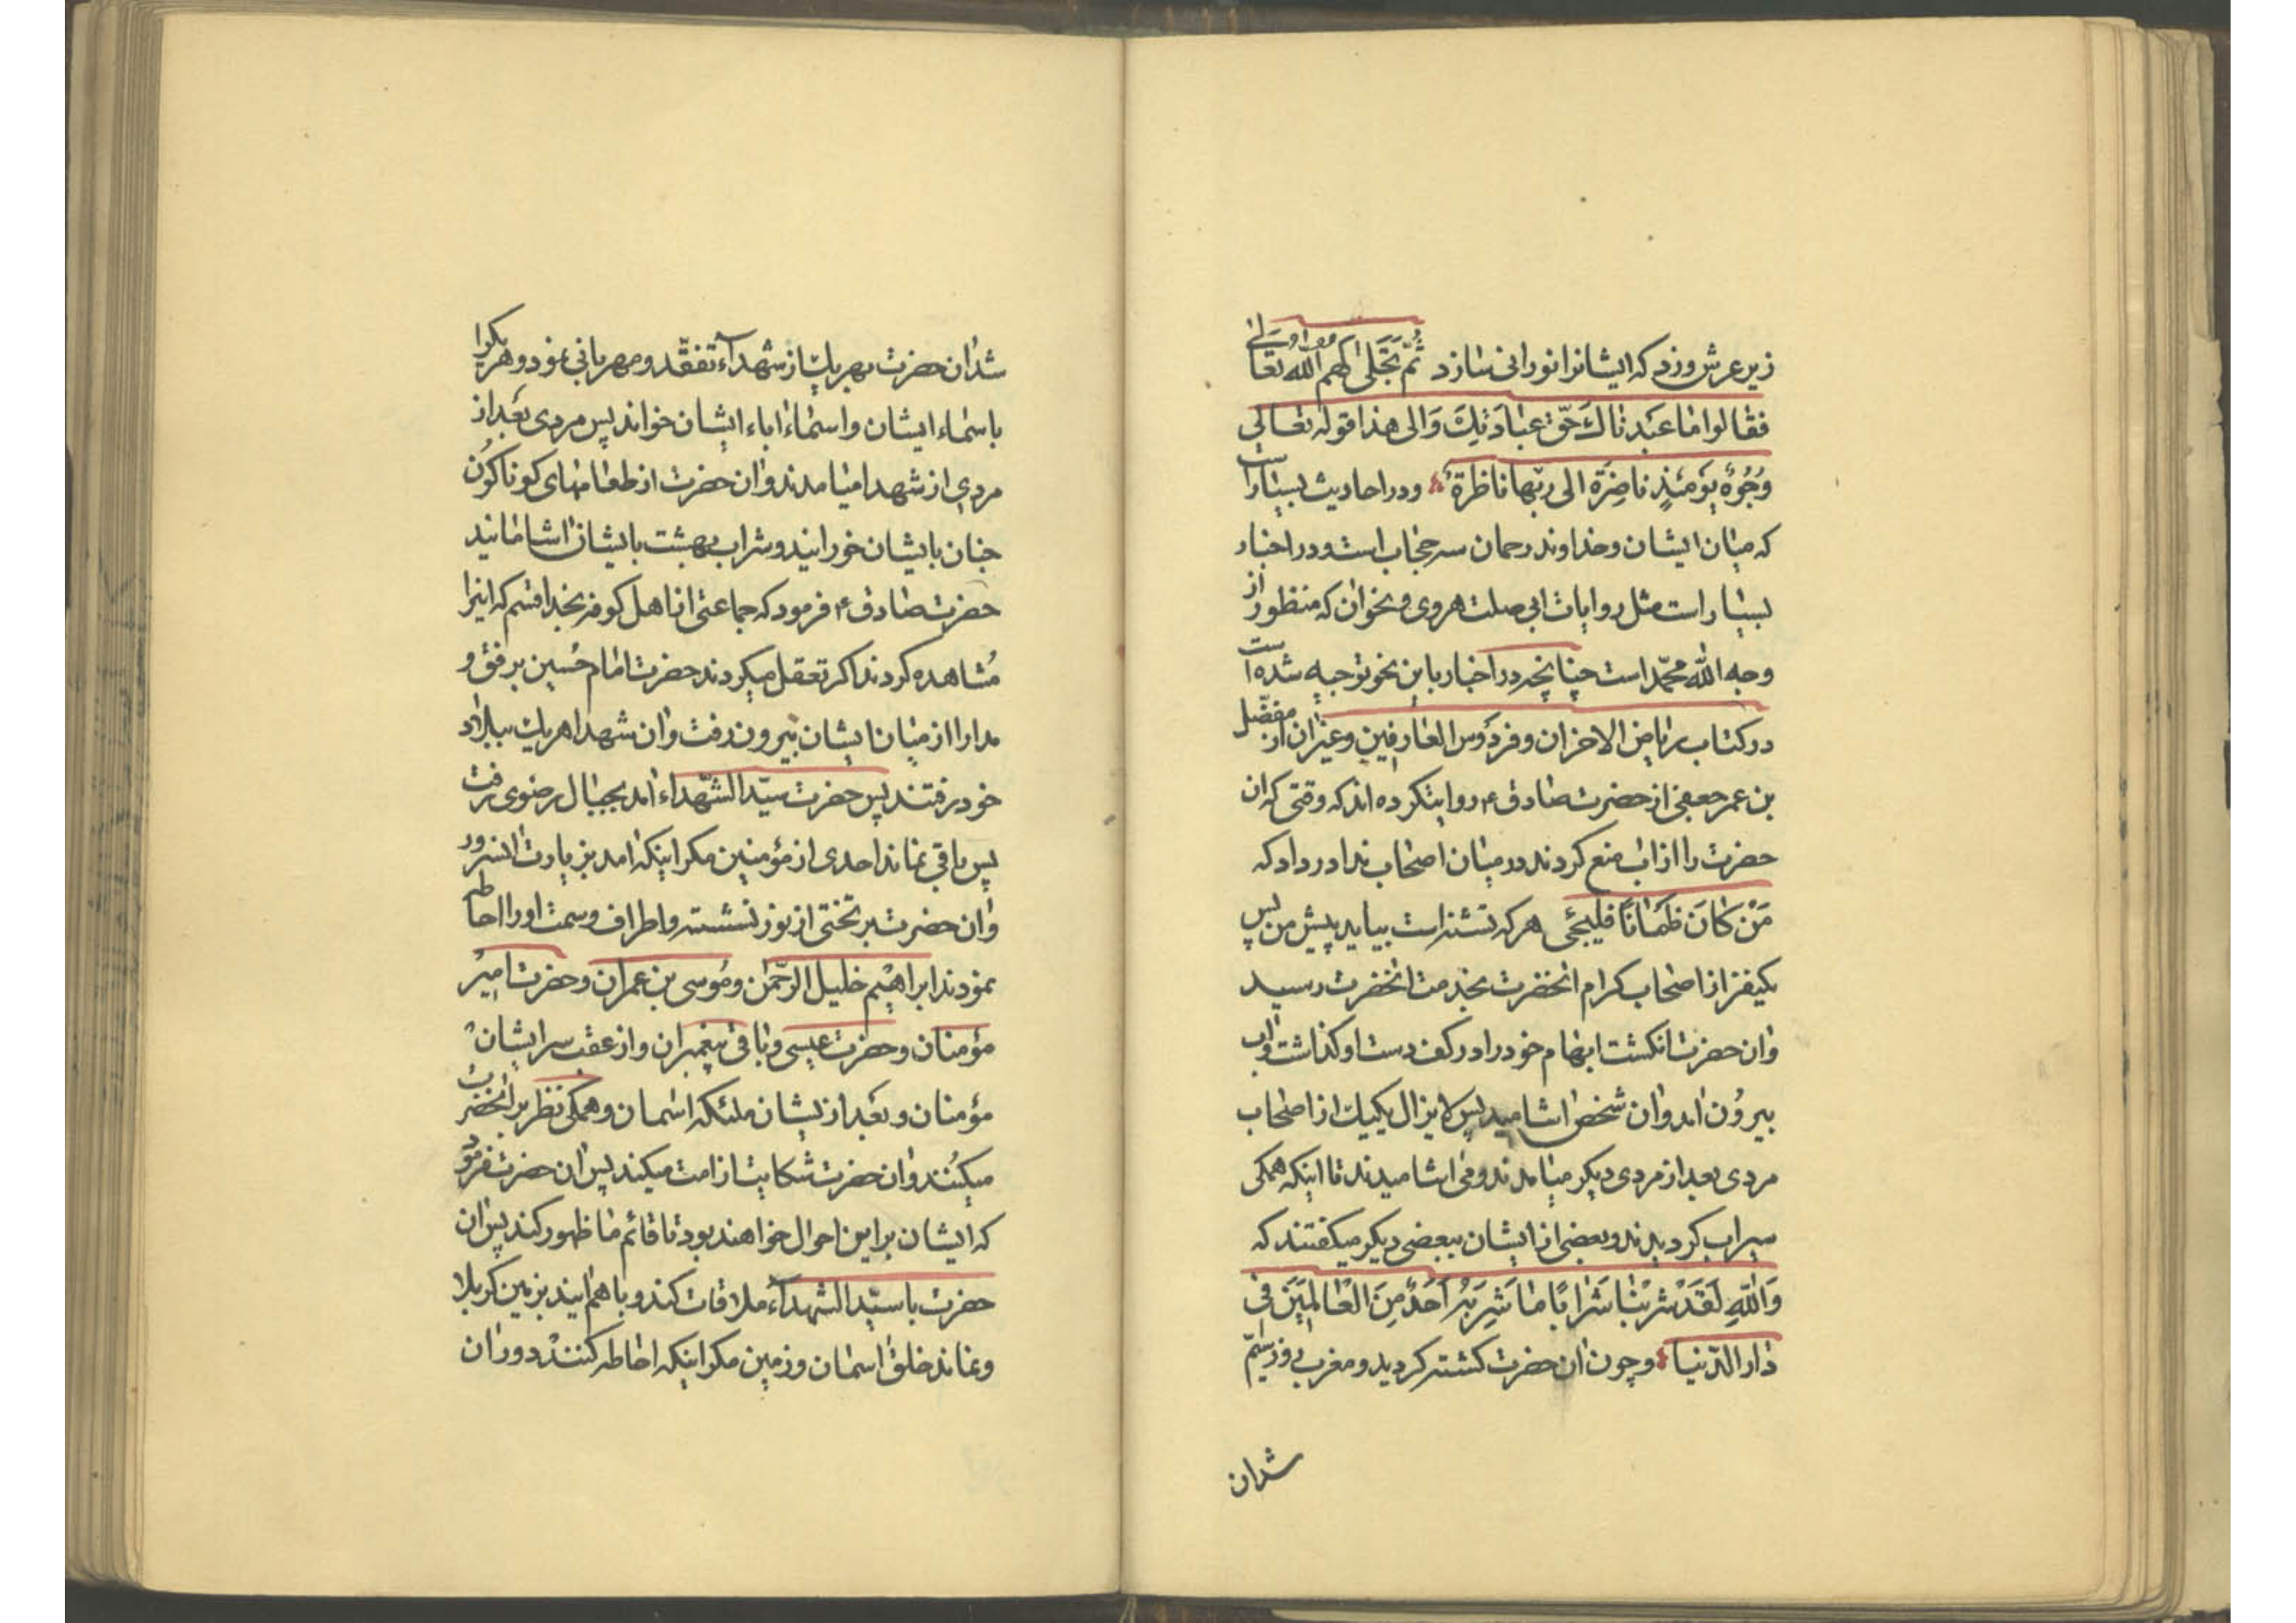 زیر عرش وزد که ایشانرا نورانی سازد ثُمّ تَجَلّی لهم اللّه تعالی
فقالوا ما عَبَدناكَ حَقّ عبٰادَتِكَ وَالی هذا قوله تعالی
وُجُوهٌ یَوْمَئِذٍ ناضِرَة الی ربّها ناظرة ودر احادیث بسیار است
که میان ایشان وخداوند رحمان سه حجاب است ودر اخبار
بسیار است مثل روایات ابی صلت هروی ونحوان که منظور از
وجه اللّه محمّد است چنانچه در اخبار باین نحو توجیه شده است
در کتاب ریاض الاحزان وفردَوس العارفین وغیران از مفضّل
بن عمر جعفی از حضرت صادق ع روایتکرده اند که وقتی که ان
حضرت را از اب منع کردند در میان اصحاب ندا در داد که
مَنْ کانَ ظَمٰاناً فلیجئی هر که تشنه است بیاید پیش من پس
یکنفر از اصحاب کرام انحضرت بخدمت انحضرت رسید
وان حضرت انکشت ابهام خود را در کف دست او کذاشت واب
بیرُون امد وان شخص اشامید پس لایزال یکیك از اصحاب
مردی بعد از مردی دیکر میامدند ومی اشامیدند تا اینکه همکی
سیراب کردیدند وبعضی از ایشان ببعضی دیکر میکفتند که
وَاللّهِ لَقَدْ شَرِبْنا شَراباً ما شَرِبَهُ اَحَدٌ مِنَ العالَمینَ فی
دار الدّنیا وچون ان حضرت کشته کردید ومغرب روز سیّم
شدان
شدان حضرت بهریك از شهدآء تفقّد ومهربانی نمود وهریکرا
باسماء ایشان واسماء اباء ایشان خواند پس مردی بَعد از
مردی از شهدا میامدند وان حضرت از طعامهای کوناکُون
جنان بایشان خورانید وشراب بهشت بایشان اشامانید
حضرت صادق ع فرمود که جماعتی از اهل کوفه بخدا قسم که اینرا
مُشاهده کردند اکر تعقل میکردند حضرت امام حُسین برفق و
مدارا از میان ایشان بیرون رفت وان شهدا هریك ببلاد
خود رفتند پس حضرت سیّد الشّهداء امد بجبال رضوی رفت
پس باقی نماند احدی از مؤمنین مکر اینکه امد بزیارت انسرور
وان حضرت بر تختی از نور نشسته واطراف وسمت او را احاطه
نمودند ابراهیم خلیل الرّحمن ومُوسی بن عمران وحضرت امیر
مؤمنان وحضرت عیسی وباقی پیغمبران واز عقب سر ایشان
مؤمنان وبَعد از یشان ملئکه اسمان وهمکی نظر بر انحضرت
میکُنند وان حضرت شکایت از امت میکند پس ان حضرت فرمود
که ایشان براین احوال خواهند بود تا قائم ما ظهور کند پس ان
حضرت با سیّد الشهدآء ملاقات کند وباهم ایند بزمین کربلا
ونماند خلق اسمان وزمین مکر اینکه احاطه کنند دوران